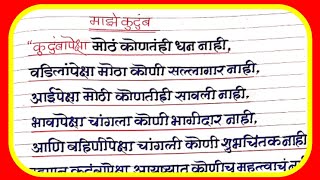 माझे कुटुंब
"कुटुंबापेक्षा मोठं कोणतंही धन नाही,
वडिलांपेक्षा मोठा कोणी सल्लागार नाही,
आईपेक्षा मोठी कोणतीही सावली नाही,
भावापेक्षा चांगला कोणी भागीदार नाही,
आणि बहिणीपेक्षा चांगली कोणी शुभचिंतक नाही
कुटुंबापेक्षा आयुष्यात कोणीच महत्वाचं